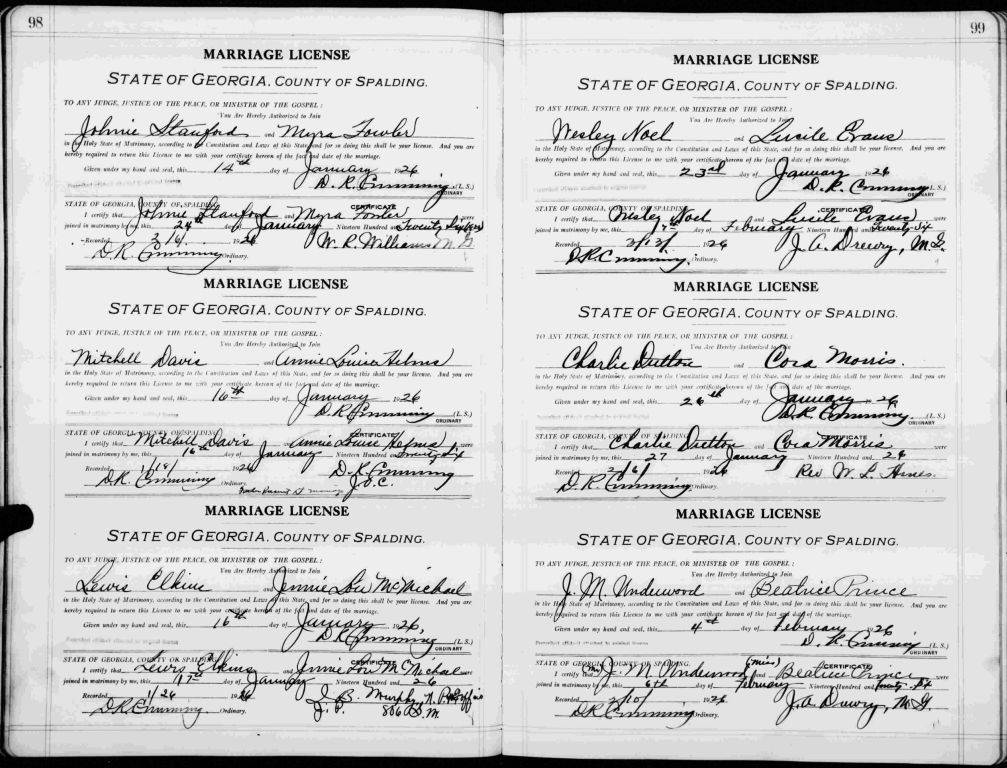 98
MARRIAGE LICENSE
STATE OF GEORGIA, COUNTY OF SPALDING.
TO ANY JUDGE, JUSTICE OF THE PEACE, OR MINISTER OF THE GOSPEL:
You Are Hereby Authorized to Join
Johnie Stanford and Myra Fowler
in the Holy State of Matrimony, according to the Constitution and Laws of this State, and for so doing this shall be your license. And you are
hereby required to return this License to me with your certificate hereon of the fact and date of the marriage.
Given under my hand and seal, this 14th day of January 1926
D. R. Cumming (L. S.)
ORDINARY
STATE OF GEORGIA, COUNTY OF SPALDING CERTIFICATE
I certify that Johnie Stanford and Myra Fowler were
joined in matrimony by me, this 24th day of January Nineteen Hundred and Twenty Six
Recorded 2/6/ 1926 W. R. Williams M. G.
D. R. Cumming Ordinary.
MARRIAGE LICENSE
STATE OF GEORGIA, COUNTY OF SPALDING.
TO ANY JUDGE, JUSTICE OF THE PEACE, OR MINISTER OF THE GOSPEL:
You Are Hereby Authorized to Join
Mitchell Davis and Annie Louise Helms
in the Holy State of Matrimony, according to the Constitution and Laws of this State, and for so doing this shall be your license. And you are
hereby required to return this License to me with your certificate hereon of the fact and date of the marriage.
Given under my hand and seal, this 16th day of January 1926
D. R. Cumming (L. S.)
ORDINARY
STATE OF GEORGIA, COUNTY OF SPALDING CERTIFICATE
I certify that Mitchell Davis and Annie Louise Helms were
joined in matrimony by me, this 16th day of January Nineteen Hundred and Twenty Six
Recorded 1/18/ 1926 D. R. Cumming
D. R. Cumming Ordinary. J. O. C.
MARRIAGE LICENSE
STATE OF GEORGIA, COUNTY OF SPALDING.
TO ANY JUDGE, JUSTICE OF THE PEACE, OR MINISTER OF THE GOSPEL:
You Are Hereby Authorized to Join
Lewis Elkins and Jennie Lou McMichael
in the Holy State of Matrimony, according to the Constitution and Laws of this State, and for so doing this shall be your license. And you are
hereby required to return this License to me with your certificate hereon of the fact and date of the marriage.
Given under my hand and seal, this 16th day of January 1926
D. R. Cumming (L. S.)
ORDINARY
STATE OF GEORGIA, COUNTY OF SPALDING CERTIFICATE
I certify that Lewis Elkins and Jennie Lou McMichael were
joined in matrimony by me, this 17th day of January Nineteen Hundred and 26
Recorded 1/26 1926 J. B. Murphy N. P.
D. R. Cumming Ordinary. J. P. G. M.
99
MARRIAGE LICENSE
STATE OF GEORGIA, COUNTY OF SPALDING.
TO ANY JUDGE, JUSTICE OF THE PEACE, OR MINISTER OF THE GOSPEL:
You Are Hereby Authorized to Join
Wesley Noel and Lucile Evans
in the Holy State of Matrimony, according to the Constitution and Laws of this State, and for so doing this shall be your license. And you are
hereby required to return this License to me with your certificate hereon of the fact and date of the marriage.
Given under my hand and seal, this 23rd day of January 1926
D. R. Cumming (L. S.)
ORDINARY
STATE OF GEORGIA, COUNTY OF SPALDING CERTIFICATE
I certify that Wesley Noel and Lucile Evans were
joined in matrimony by me, this day of February Nineteen Hundred and Twenty Six
Recorded 2/13/ 1926 J. A. Drewry, M. G.
D. R. Cumming Ordinary.
MARRIAGE LICENSE
STATE OF GEORGIA, COUNTY OF SPALDING.
TO ANY JUDGE, JUSTICE OF THE PEACE, OR MINISTER OF THE GOSPEL:
You Are Hereby Authorized to Join
Charlie Dutton and Cora Morris.
in the Holy State of Matrimony, according to the Constitution and Laws of this State, and for so doing this shall be your license. And you are
hereby required to return this License to me with your certificate hereon of the fact and date of the marriage.
Given under my hand and seal, this 26th day of January 1926
D. R. Cumming. (L. S.)
ORDINARY
STATE OF GEORGIA, COUNTY OF SPALDING CERTIFICATE
I certify that Charlie Dutton and Cora Morris were
joined in matrimony by me, this 27 day of January Nineteen Hundred and 26
Recorded 2/6/ 1926 Rev W. L. Hines.
D. R. Cumming Ordinary.
MARRIAGE LICENSE
STATE OF GEORGIA, COUNTY OF SPALDING.
TO ANY JUDGE, JUSTICE OF THE PEACE, OR MINISTER OF THE GOSPEL:
You Are Hereby Authorized to Join
J. M. Underwood and Beatrice Prince
in the Holy State of Matrimony, according to the Constitution and Laws of this State, and for so doing this shall be your license. And you are
hereby required to return this License to me with your certificate hereon of the fact and date of the marriage.
Given under my hand and seal, this 4th day of February 1926
D. R. Cumming (L. S.)
ORDINARY
STATE OF GEORGIA, COUNTY OF SPALDING CERTIFICATE
I certify that (Mr) J. M. Underwood and (Miss) Beatrice Prince were
joined in matrimony by me, this 6th day of February Nineteen Hundred and Twenty Six
Recorded 2/10/ 1926 J. A. Drewry, M. G.
D. R. Cumming Ordinary.